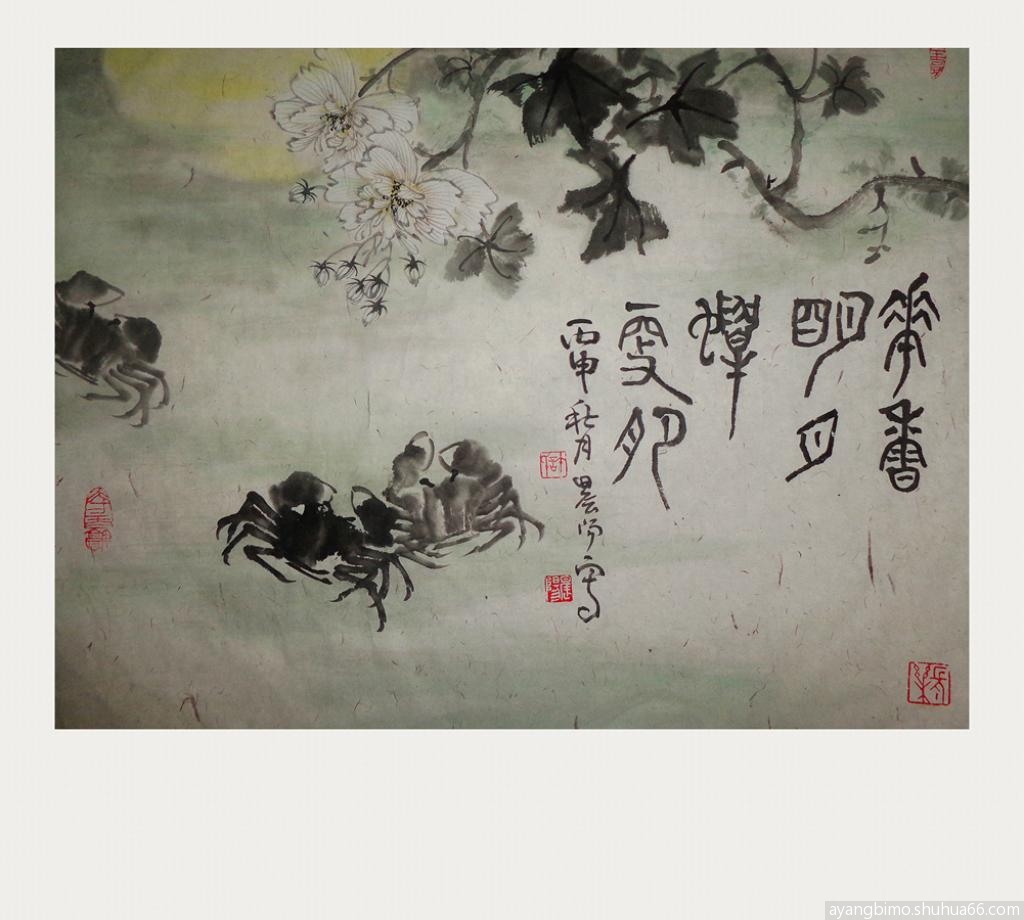 華香
明月
蟹
更肥
丙申秋月晨阳写
ayangbimo.shuhua66.com